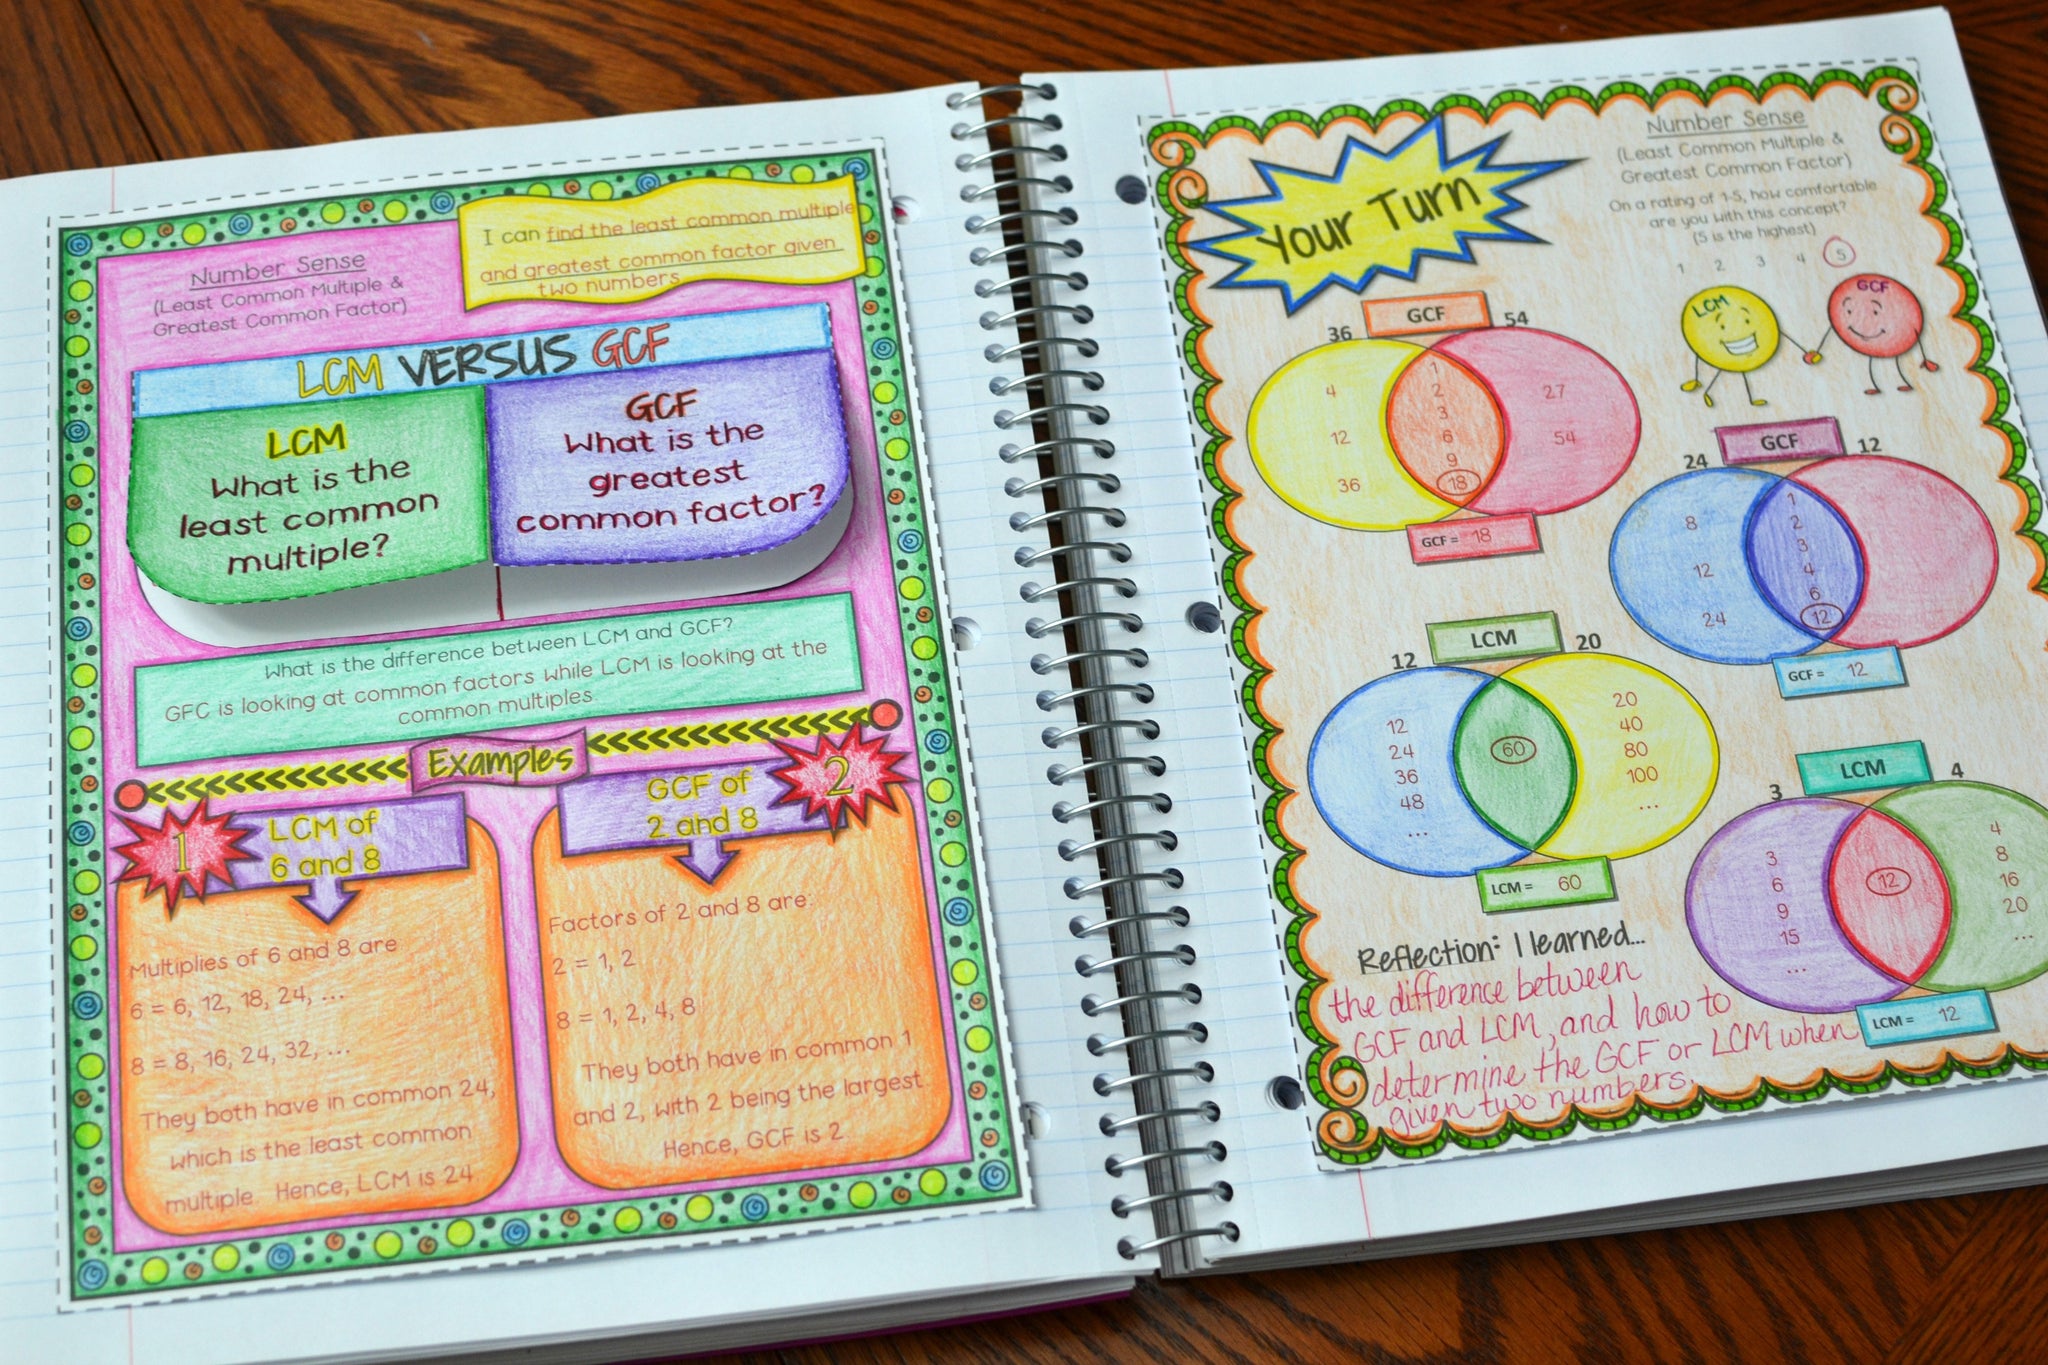 Number Sense
(Least Common Multiple &
Greatest Common Factor)
I can find the least common multiple
and greatest common factor given
two numbers
LCM VERSUS GCF
LCM
What is the
least common
multiple?
GCF
What is the
greatest
common factor?
What is the difference between LCM and GCF?
GFC is looking at common factors while LCM is looking at the
common multiples.
Examples
1
LCM of
6 and 8
Multiplies of 6 and 8 are
6 = 6, 12, 18, 24, ...
8 = 8, 16, 24, 32, ...
They both have in common 24,
which is the least common
multiple. Hence, LCM is 24.
GCF of
2 and 8
2
Factors of 2 and 8 are:
2 = 1, 2
8 = 1, 2, 4, 8
They both have in common 1
and 2, with 2 being the largest.
Hence, GCF is 2.
Your Turn
Number Sense
(Least Common Multiple &
Greatest Common Factor)
On a rating of 1-5, how comfortable
are you with this concept?
(5 is the highest)
1 2 3 4 5
LCM
GCF
GCF
36
54
4
12
36
1
2
3
6
9
18
27
54
GCF = 18
GCF
24
12
8
12
24
1
2
3
4
6
12
GCF = 12
LCM
12
20
12
24
36
48
...
60
20
40
80
100
...
LCM = 60
LCM
3
4
3
6
9
15
...
12
4
8
16
20
...
LCM = 12
Reflection: I learned...
the difference between
GCF and LCM, and how to
determine the GCF or LCM when
given two numbers.